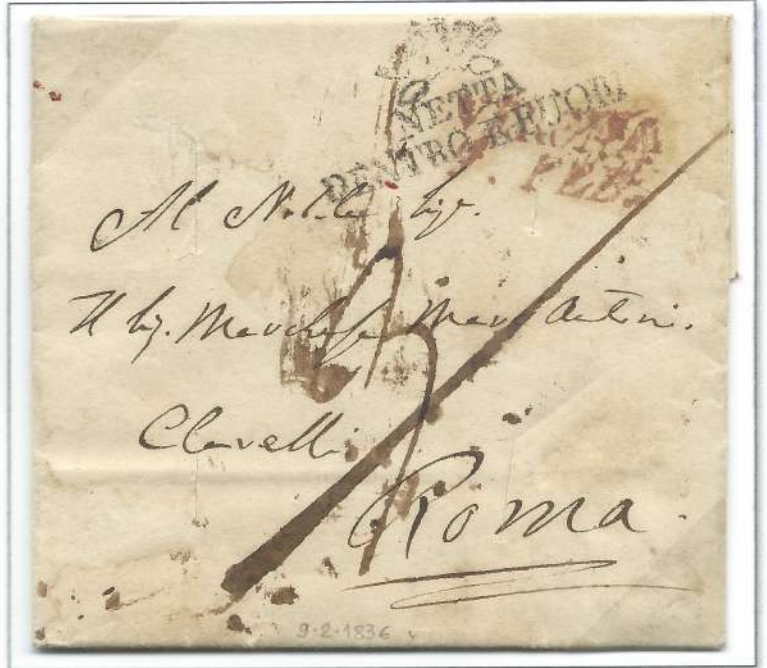 NETTA
DENTRO E FUORI
FEB.
Al Nobile Sigr.
Il Sig. Marchese Marc Antoni.
Clavelli
Roma.
9-2-1836